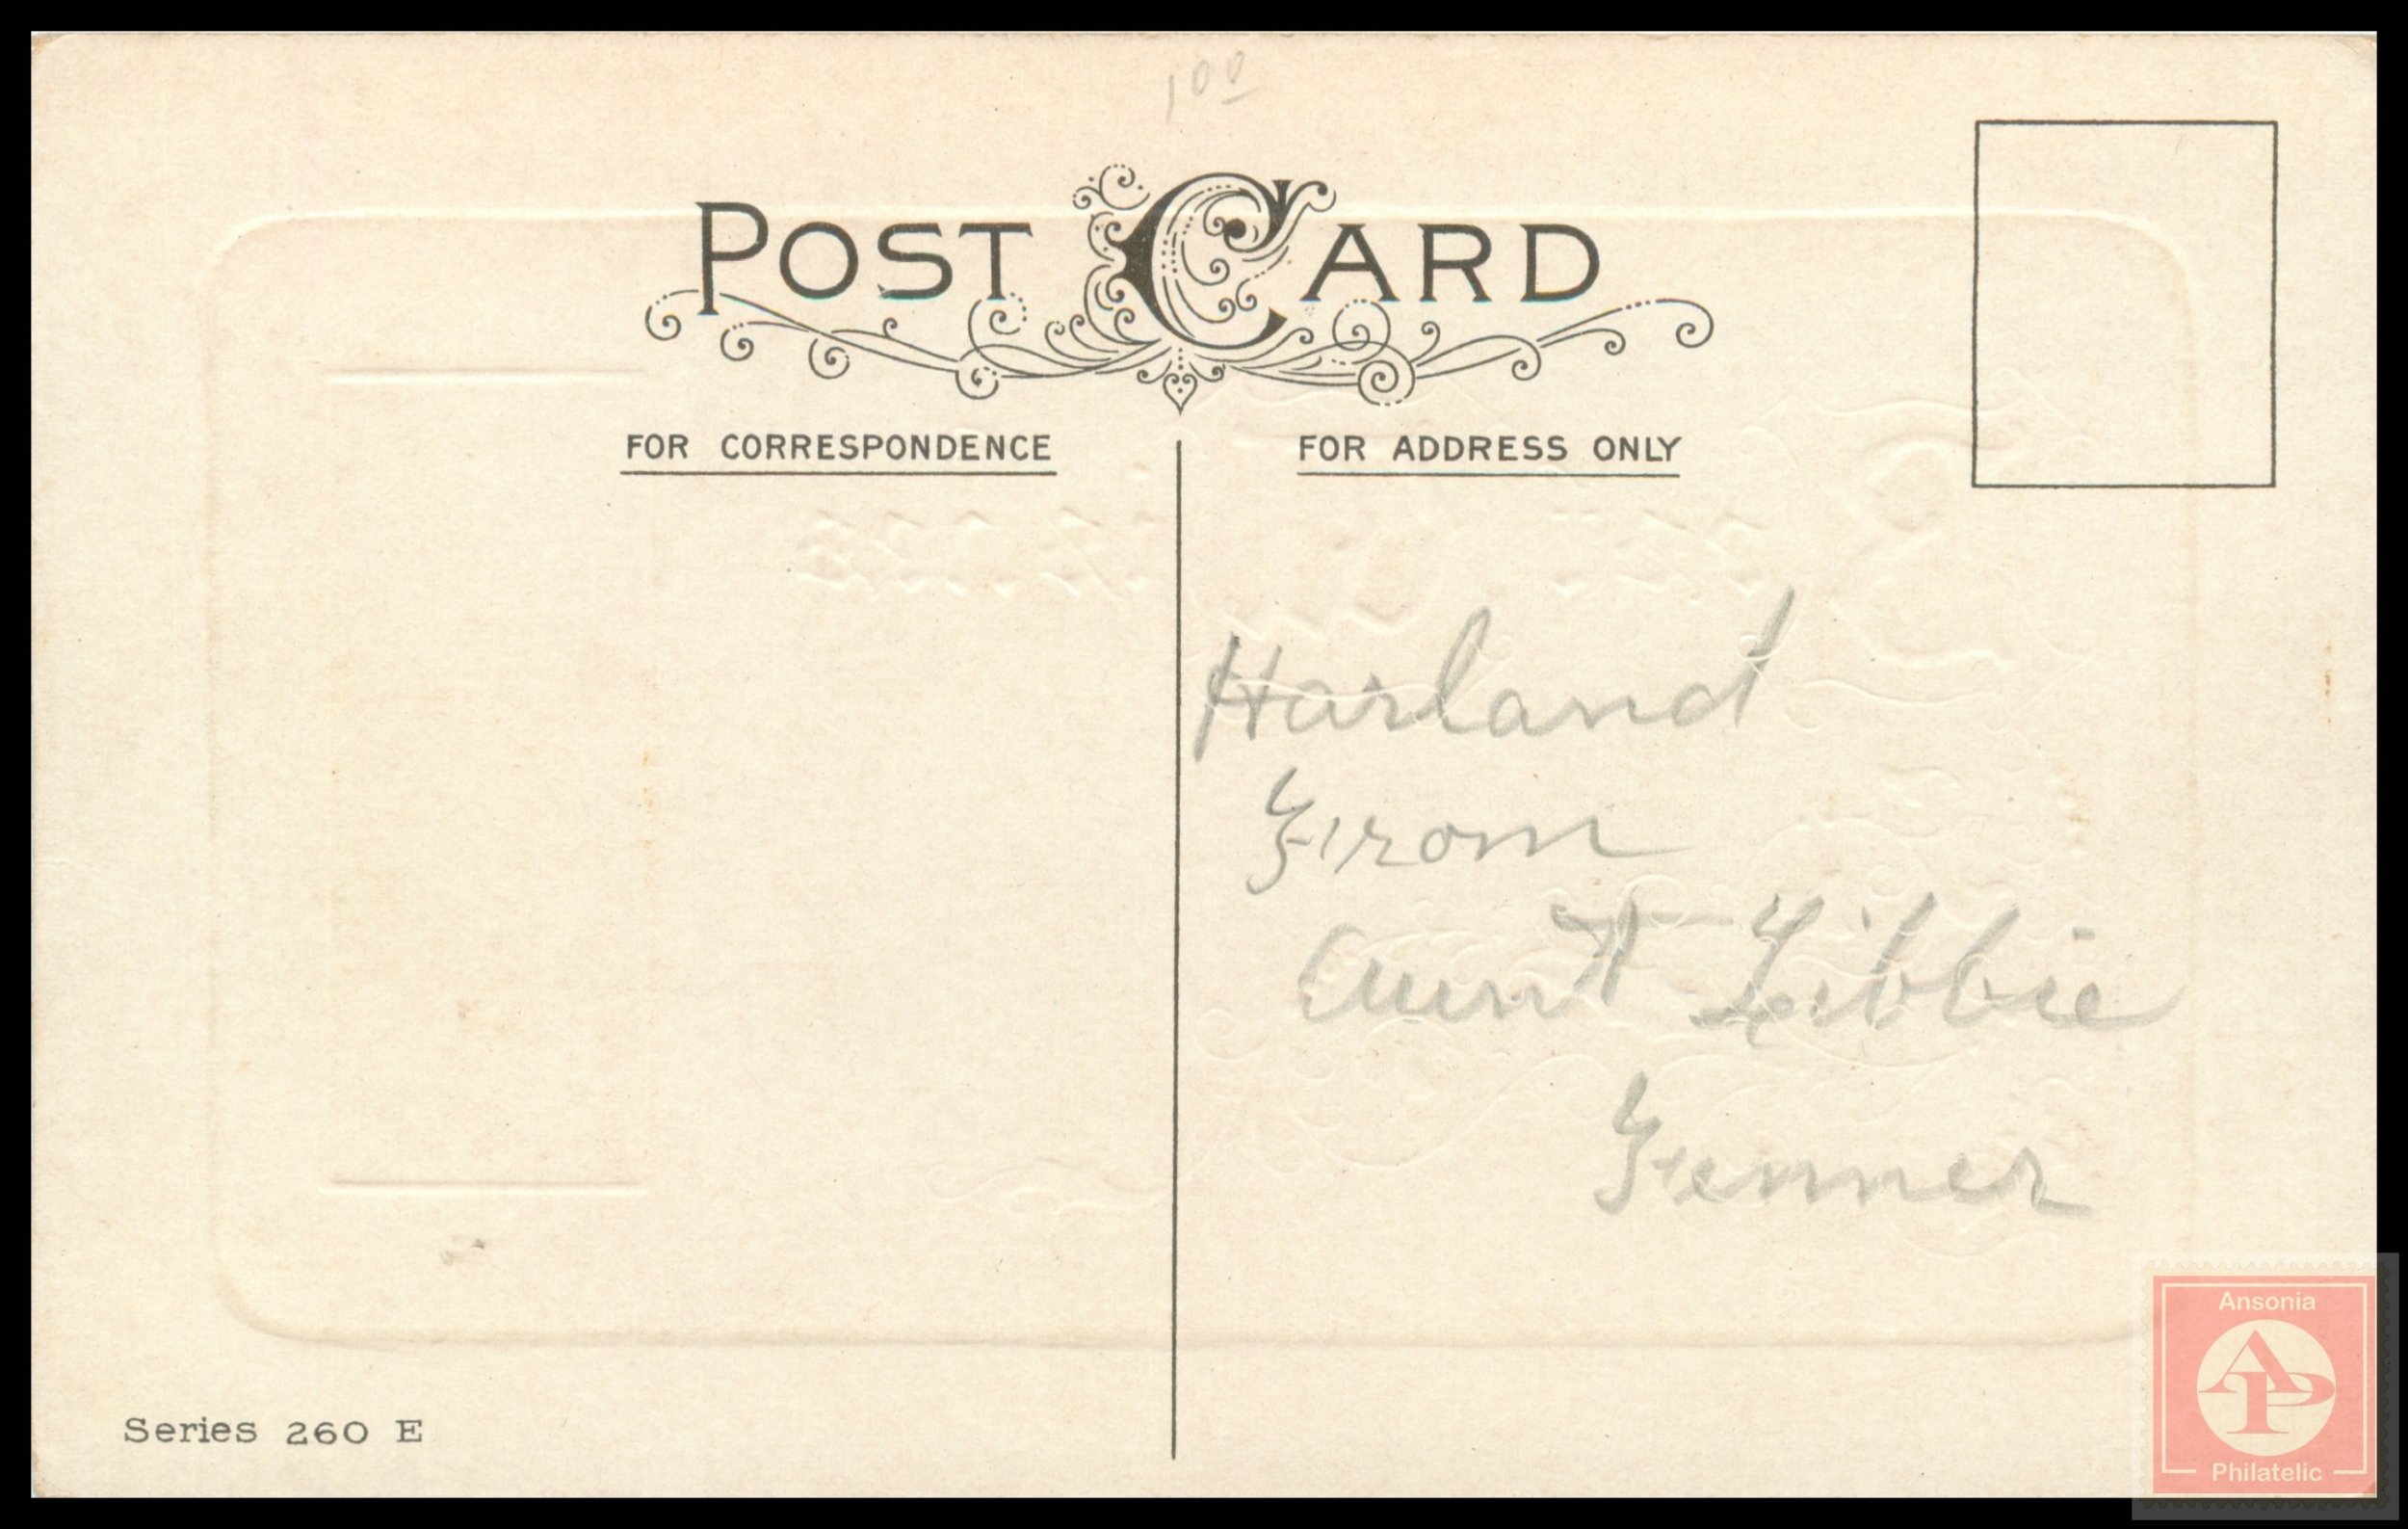 1 00
POST CARD
FOR CORRESPONDENCE
FOR ADDRESS ONLY
Harland
From
Aunt Libbie
Fenner
Series 260 E
Ansonia
AP
Philatelic